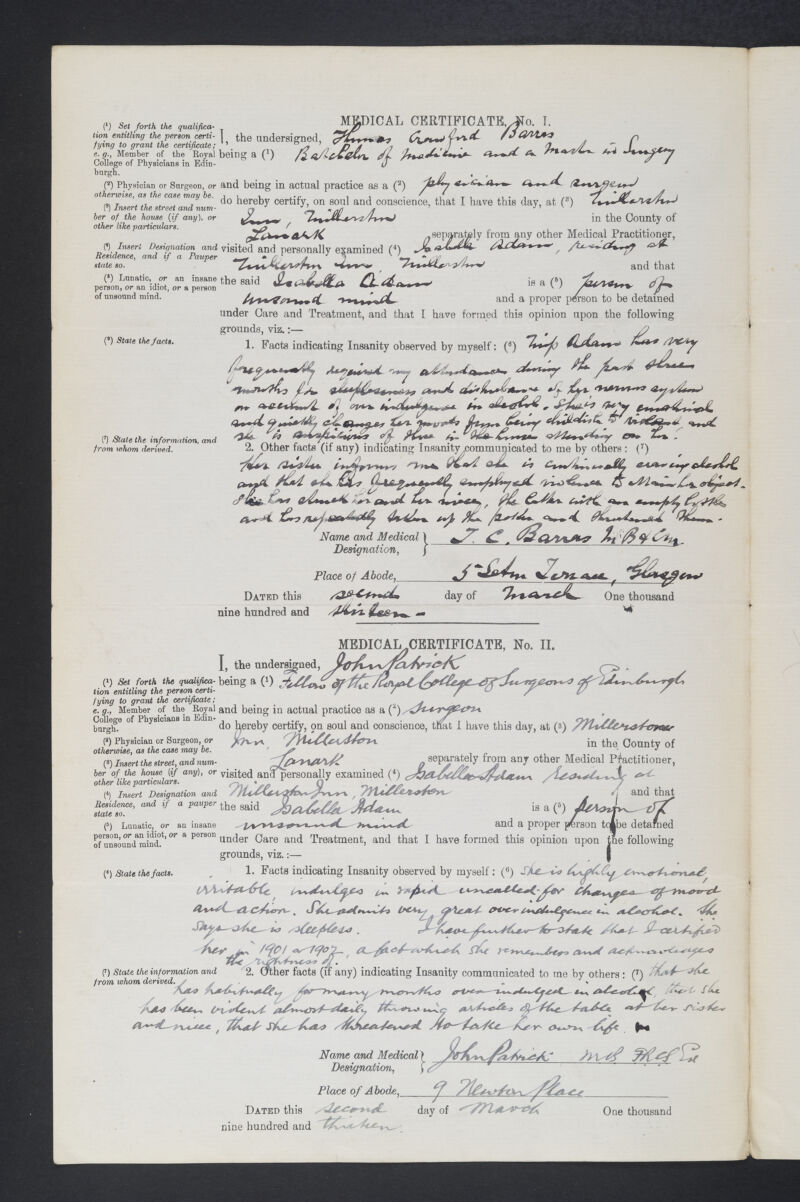 MEDICAL CERTIFICATE, No. I.
(¹) Set forth the qualifica-
tion entitling the person certi-
fying to grant the certificate;
e.g., Member of the Royal
College of Physicians in Edin-
burgh.
(²) Physician or Surgeon, or
otherwise, as the case may be.
(³) Insert the street and num-
ber of the house (if any), or
other like particulars.
(⁴) Insert Designation and
Residence, and if a Pauper
state so.
(⁵) Lunatic, or an insane
person, or an idiot, or a person
of unsound mind.
(⁶) State the facts.
(⁷) State the information, and
from whom derived.
I, the undersigned, Thomas Crawford Barras
being a (¹) Batchelor of Medicine and a Master in Surgery
and being in actual practice as a (²) physician and surgeon
do hereby certify, on soul and conscience, that I have this day, at (³) Millerston
Inn, Millerston in the County of
Lanark separately from any other Medical Practitioner,
visited and personally examined (⁴) Isabella Adam, residing at
Millerston Inn, Millerston and that
the said Isabella Adam is a (⁵) person of
unsound mind and a proper person to be detained
under Care and Treatment, and that I have formed this opinion upon the following
grounds, viz.:—
1. Facts indicating Insanity observed by myself: (⁶) Miss Adam has very
frequently required my attendance during the past three
months for sleeplessness and disturbance of her nervous system
on account of over indulgence in alcohol. She is very emotional
and quickly changes her moods from being childish to violent, and
she is suspicious of those in the house attending on her.
2. Other facts (if any) indicating Insanity communicated to me by others: (⁷)
Her sister informs me that she is continually craving alcohol
and that she has frequently employed violence to attain her object.
She has struck her and her niece, the latter with an empty bottle
and has repeatedly taken up the poker and threatened them.
Name and Medical Designation, T. C. Barras M.B & C.M.
Place of Abode, 5 Seton Terrace, Glasgow
DATED this second day of March One thousand
nine hundred and thirteen
MEDICAL CERTIFICATE, No. II.
(¹) Set forth the qualifica-
tion entitling the person certi-
fying to grant the certificate;
e.g., Member of the Royal
College of Physicians in Edin-
burgh.
(²) Physician or Surgeon, or
otherwise, as the case may be.
(³) Insert the street and num-
ber of the house (if any), or
other like particulars.
(⁴) Insert Designation and
Residence, and if a pauper
state so.
(⁵) Lunatic, or an insane
person, or an idiot, or a person
of unsound mind.
(⁶) State the facts.
(⁷) State the information and
from whom derived.
I, the undersigned, John Patrick
being a (¹) Fellow of the Royal College of Surgeons of Edinburgh
and being in actual practice as a (²) surgeon
do hereby certify, on soul and conscience, that I have this day, at (³) Millerston
Inn, Millerston in the County of
Lanark separately from any other Medical Practitioner,
visited and personally examined (⁴) Isabella Adam residing at
Millerston Inn, Millerston and that
the said Isabella Adam is a (⁵) person of
unsound mind and a proper person to be detained
under Care and Treatment, and that I have formed this opinion upon the following
grounds, viz.:—
1. Facts indicating Insanity observed by myself: (⁶) She is highly emotional,
irritable, indulges in rapid uncalled-for changes of mood
and action. She admits very great over indulgence in alcohol. She
says she is sleepless. I have further to state that I certified
her in 1901 or 1902, a fact which she remembers and acknowledges
the rightness of.
2. Other facts (if any) indicating Insanity communicated to me by others: (⁷) that she
has habitually for many months over indulged in alcohol, that she
has been violent almost daily throwing articles of the table at her sister
and niece, that she has threatened to take her own life.
Name and Medical Designation, John Patrick M.B. F.R.C.S. Ed
Place of Abode, 9 Newton Place
DATED this second day of March One thousand
nine hundred and thirteen.